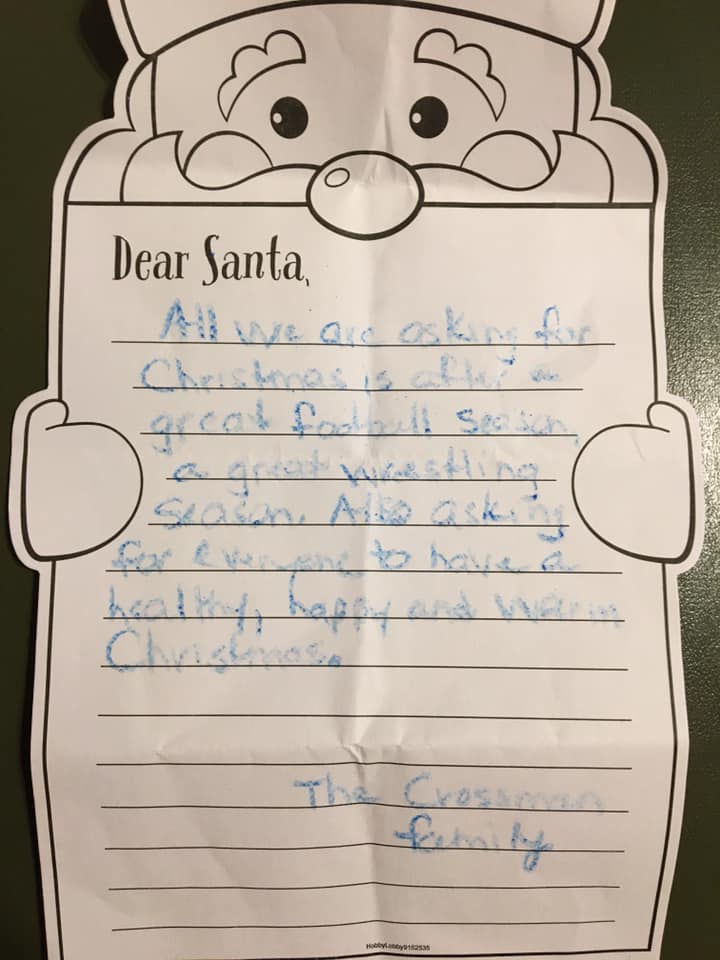 Dear Santa,
All we are asking for
Christmas is after a
great football season,
a great wrestling
season. Also asking
for everyone to have a
healthy, happy and warm
Christmas.
The Crossman
family
HobbyLobby9152535